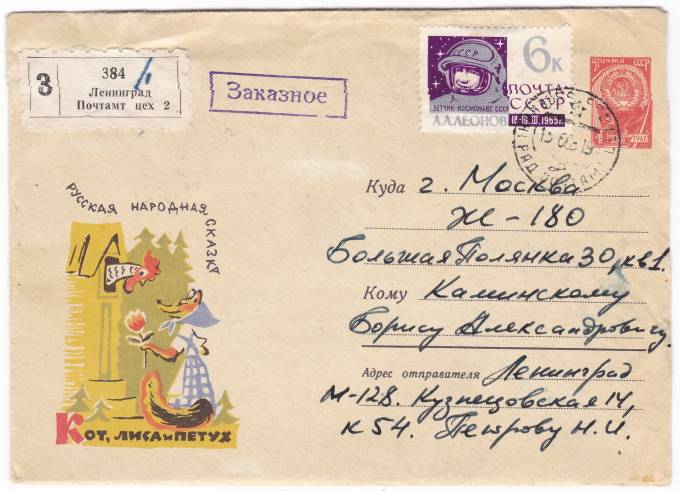 З
384
Ленинград
Почтамт цех 2
Заказное
СССР
6к
ПОЧТА
СССР
ЛЕТЧИК-КОСМОНАВТ СССР
18-19.III.1965г.
А.А.ЛЕОНОВ
ПОЧТА СССР
РУССКАЯ НАРОДНАЯ СКАЗКА
КОТ, ЛИСА и ПЕТУХ
Куда г. Москва
Ж-180
Большая Полянка 30, кв1.
Кому Каминскому
Борису Александровичу.
Адрес отправителя Ленинград
М-128. Кузнецовская 14,
к 54. Петрову Н.И.